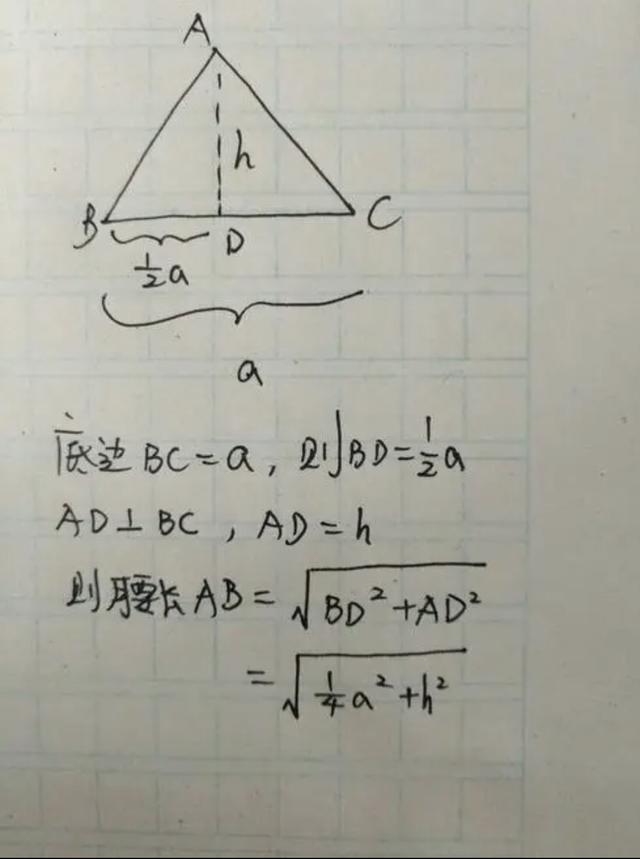 A
h
B
D
C
1/2 a
a
底边BC=a,则BD=1/2 a
AD⊥BC,AD=h
则腰长AB=√(BD²+AD²)
=√(1/4 a²+h²)